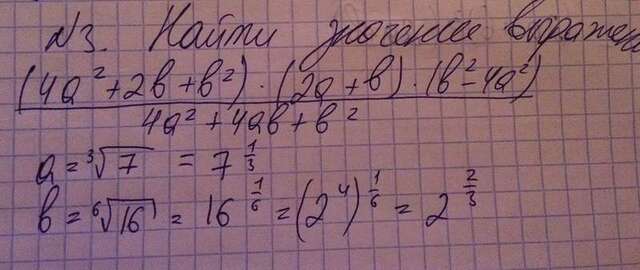 N3. Найти значение выражен
(4a² + 2b + b²) · (2a + b) · (b² - 4a²)
4a² + 4ab + b²
a = ∛7 = 7^(1/3)
b = ⁶√16 = 16^(1/6) = (2⁴)^(1/6) = 2^(2/3)